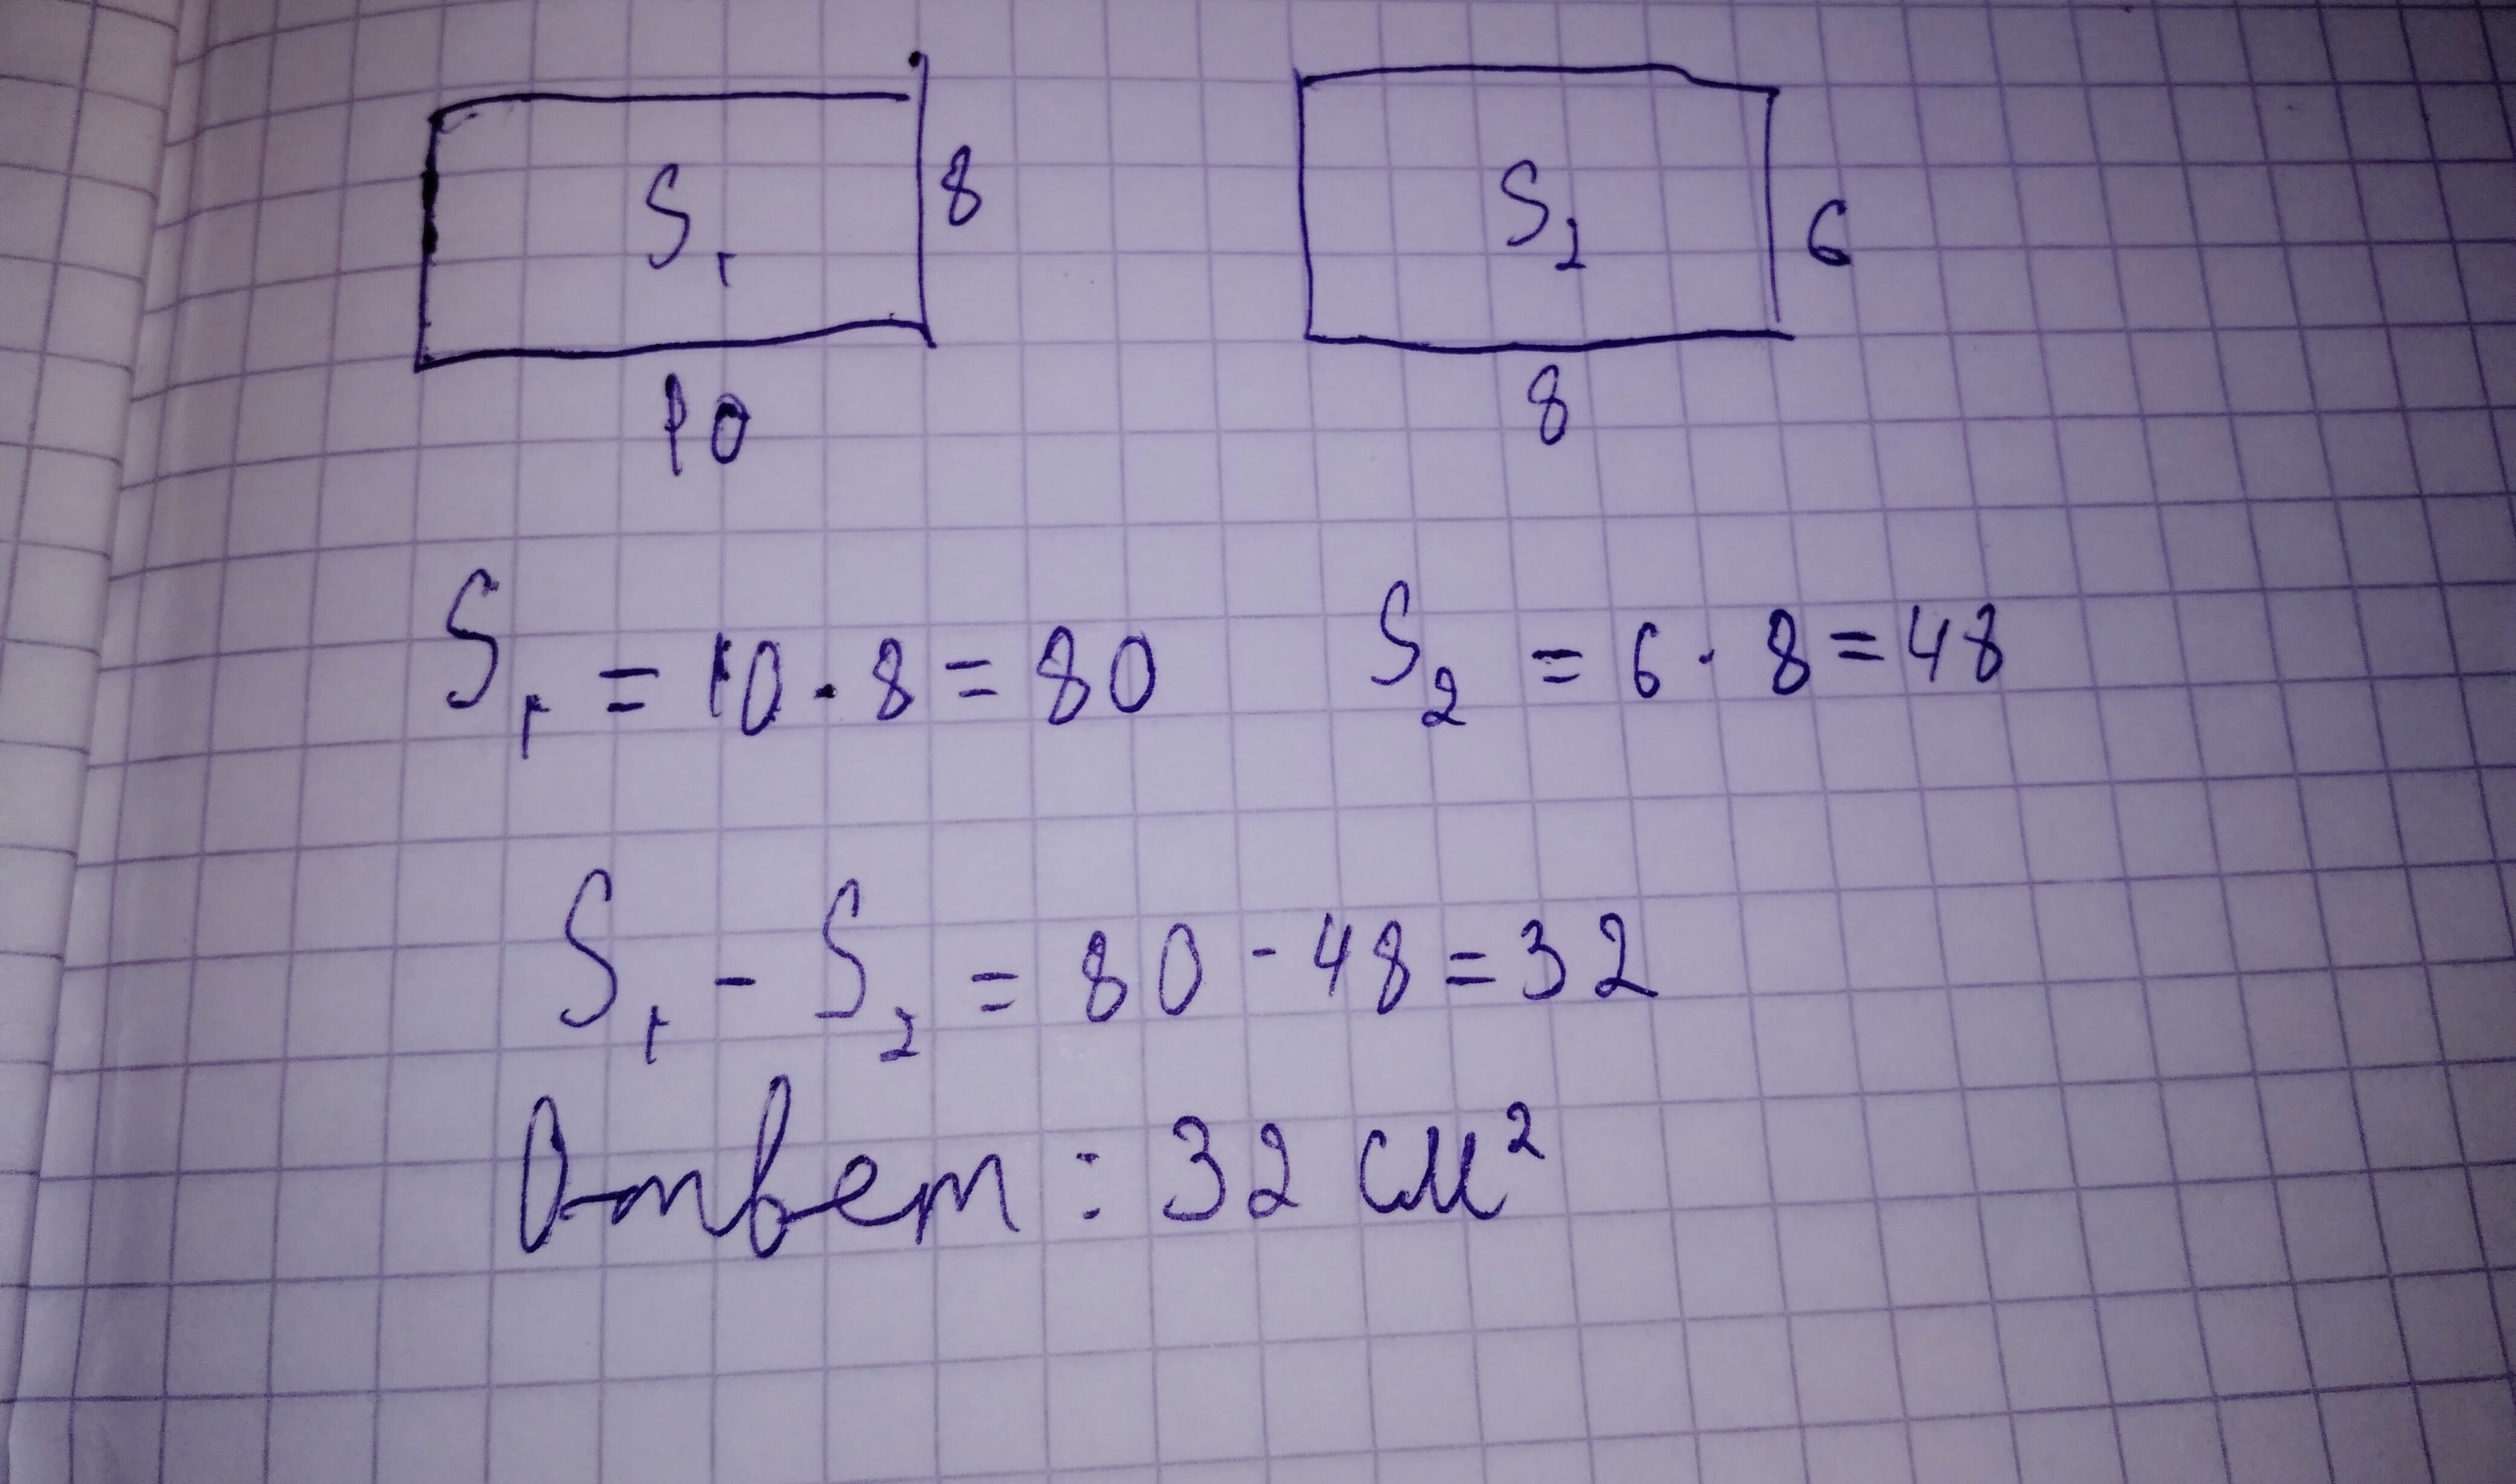 S₁ 8 S₂ 6
10 8
S₁ = 10 · 8 = 80 S₂ = 6 · 8 = 48
S₁ - S₂ = 80 - 48 = 32
Ответ : 32 см²